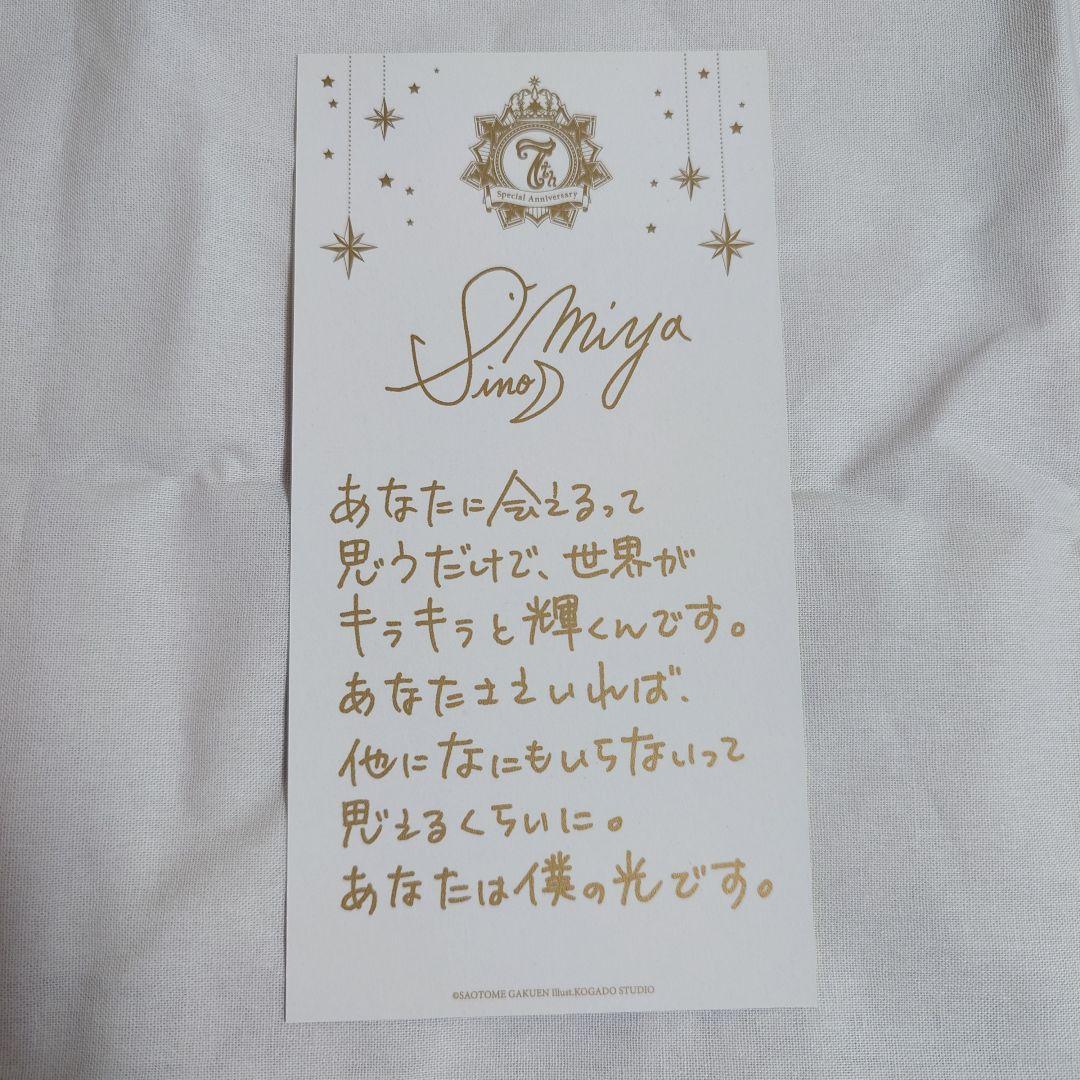 7th
Special Anniversary
S. Miya
Sino
あなたに会えるって
思うだけで、世界が
キラキラと輝くんです。
あなたさえいれば、
他になにもいらないって
思えるくらいに。
あなたは僕の光です。
©SAOTOME GAKUEN Illust.KOGADO STUDIO